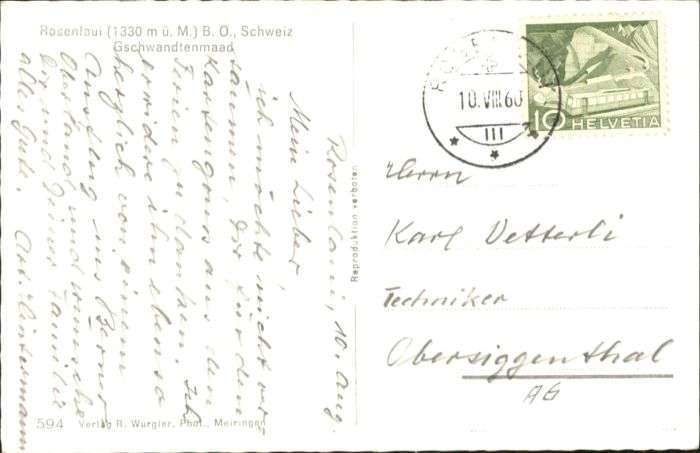 Rosenlaui (1330 m ü. M.) B. O., Schweiz
Gschwandtenmaad
Rosenlaui, 10. Aug.
Mein Lieber
ich möchte nicht ver-
säumen, Dir für den
Kartengruss aus den
Ferien zu danken. Ich
erwidere ihn ebenso
herzlich von einem
Ausflug ins Berner
Oberland und wünsche
Dir und Deiner Familie
alles Gute.
594 Verlag R. Würgler, Phot., Meiringen
Reproduktion verboten
10.VIII.60
III
10 HELVETIA
Herrn
Karl Vetterli
Techniker
Obersiggenthal
AG